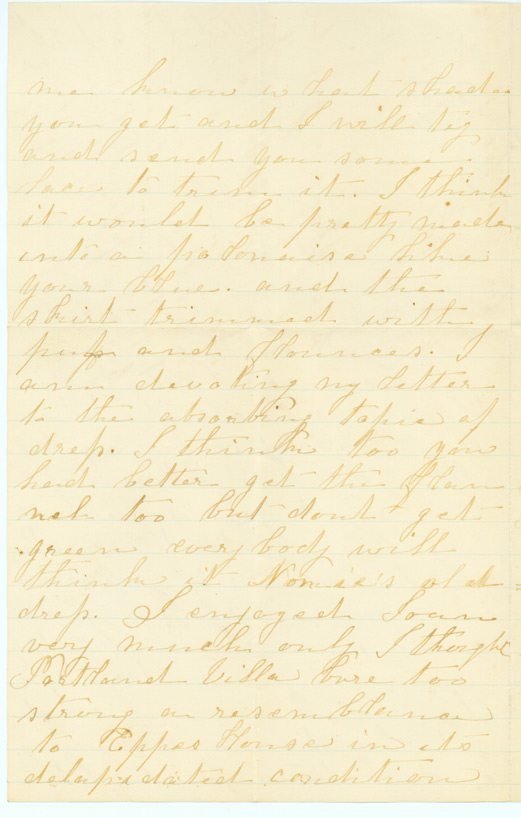 me know what shade
you get and I will try
and send you some
lace to trim it. I think
it would be pretty made
into a polonaise like
your blue. and the
skirt trimmed with
puffs and flounces. I
am devoting my letter
to the absorbing topic of
dress. I think too you
had better get the flan
nel too but dont get
green every body will
think it Nonie's old
dress. I enjoyed Joan
very much only I thought
Portland Villa bore too
strong a resemblance
to Eppes House in its
delapidated condition